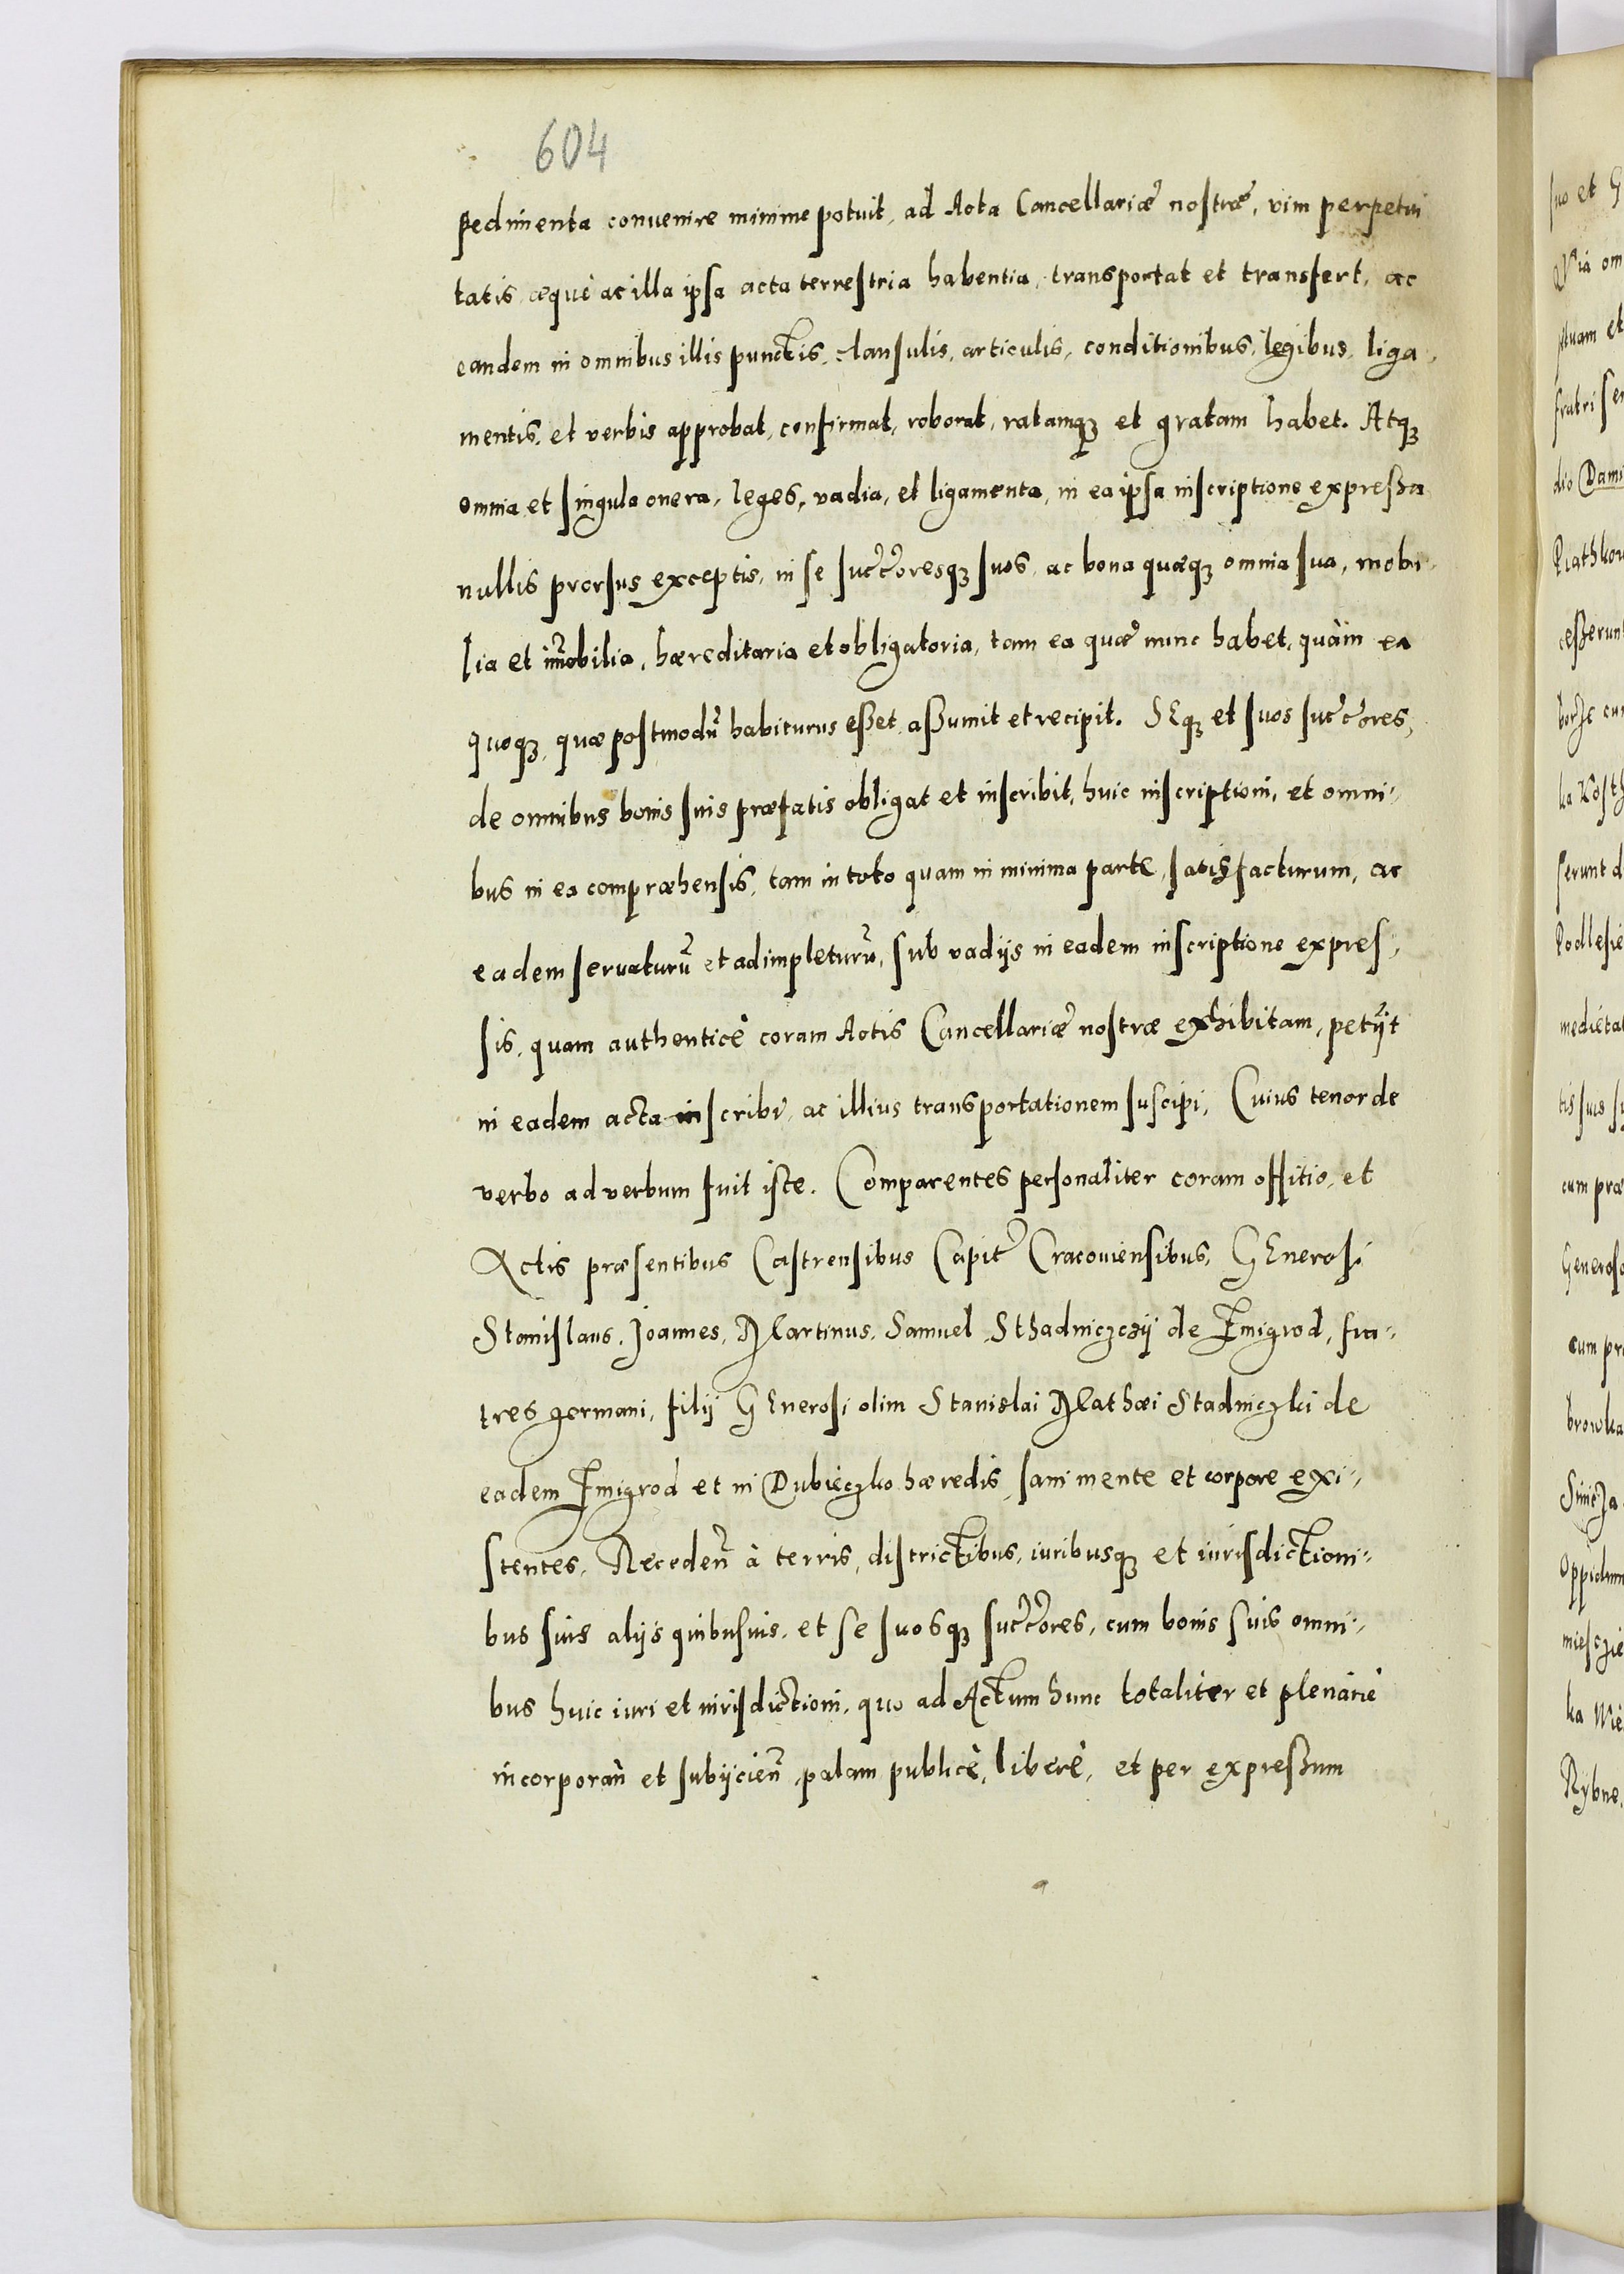 604
pedimenta conuenire minime potuit, ad Acta Cancellariæ nostræ, vim perpetui
tatis, æquè ac illa ipsa acta terrestria habentia, transportat et transfert, ac
eandem in omnibus illis punctis, clausulis, articulis, conditionibus, legibus, liga,
mentis, et verbis approbat, confirmat, roborat, ratamqꝫ et gratam habet. Atqꝫ
omnia et singula onera, leges, vadia, et ligamenta, in ea ipsa inscriptione expressa
nullis prorsus exceptis, in se succ̃oresqꝫ suos, ac bona quæqꝫ omnia sua, mobi,
lia et im̃obilia, hæreditaria et obligatoria, tam ea quæ nunc habet, quàm ea
quoqꝫ, quæ postmodũ habiturus esset, assumit et recipit. SEqꝫ et suos succ̃ores,
de omnibus bonis suis præfatis obligat et inscribit, huic inscriptioni, et omni,,
bus in ea compræhensis, tam in toto quam in minima parte, satisfacturum, ac
eadem seruaturũ et adimpleturũ, sub vadijs in eadem inscriptione expres,,
sis, quam authenticè coram Actis Cancellariæ nostræ exhibitam, petijt
in eadem acta inscribi, ac illius transportationem suscipi, Cuius tenor de
verbo ad verbum fuit iste. Comparentes personaliter coram offitio, et
Actis præsentibus Castrensibus Capit̃ Cracouiensibus, GEnerosi
Stanislaus, Joannes, Martinus, Samuel Sthadniczczÿ de Zmigrod, fra,,
tres germani, filij GEnerosi olim Stanislai Mathæi Stadniczki de
eadem Zmigrod et in Dubieczko hæredis, sani mente et corpore exi,,
stentes, Recedeñ à terris, districtibus, iuribusqꝫ et iurisdictioni,,
bus suis alijs quibusuis, et se suosqꝫ succ̃ores, cum bonis suis omni,,
bus huic iuri et iurisdictioni, quo ad Actum hunc totaliter et plenariè
incorporañ et subijcieñ, palam publicè, liberè, et per expressum